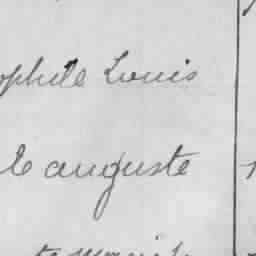 ophile Louis
le auguste